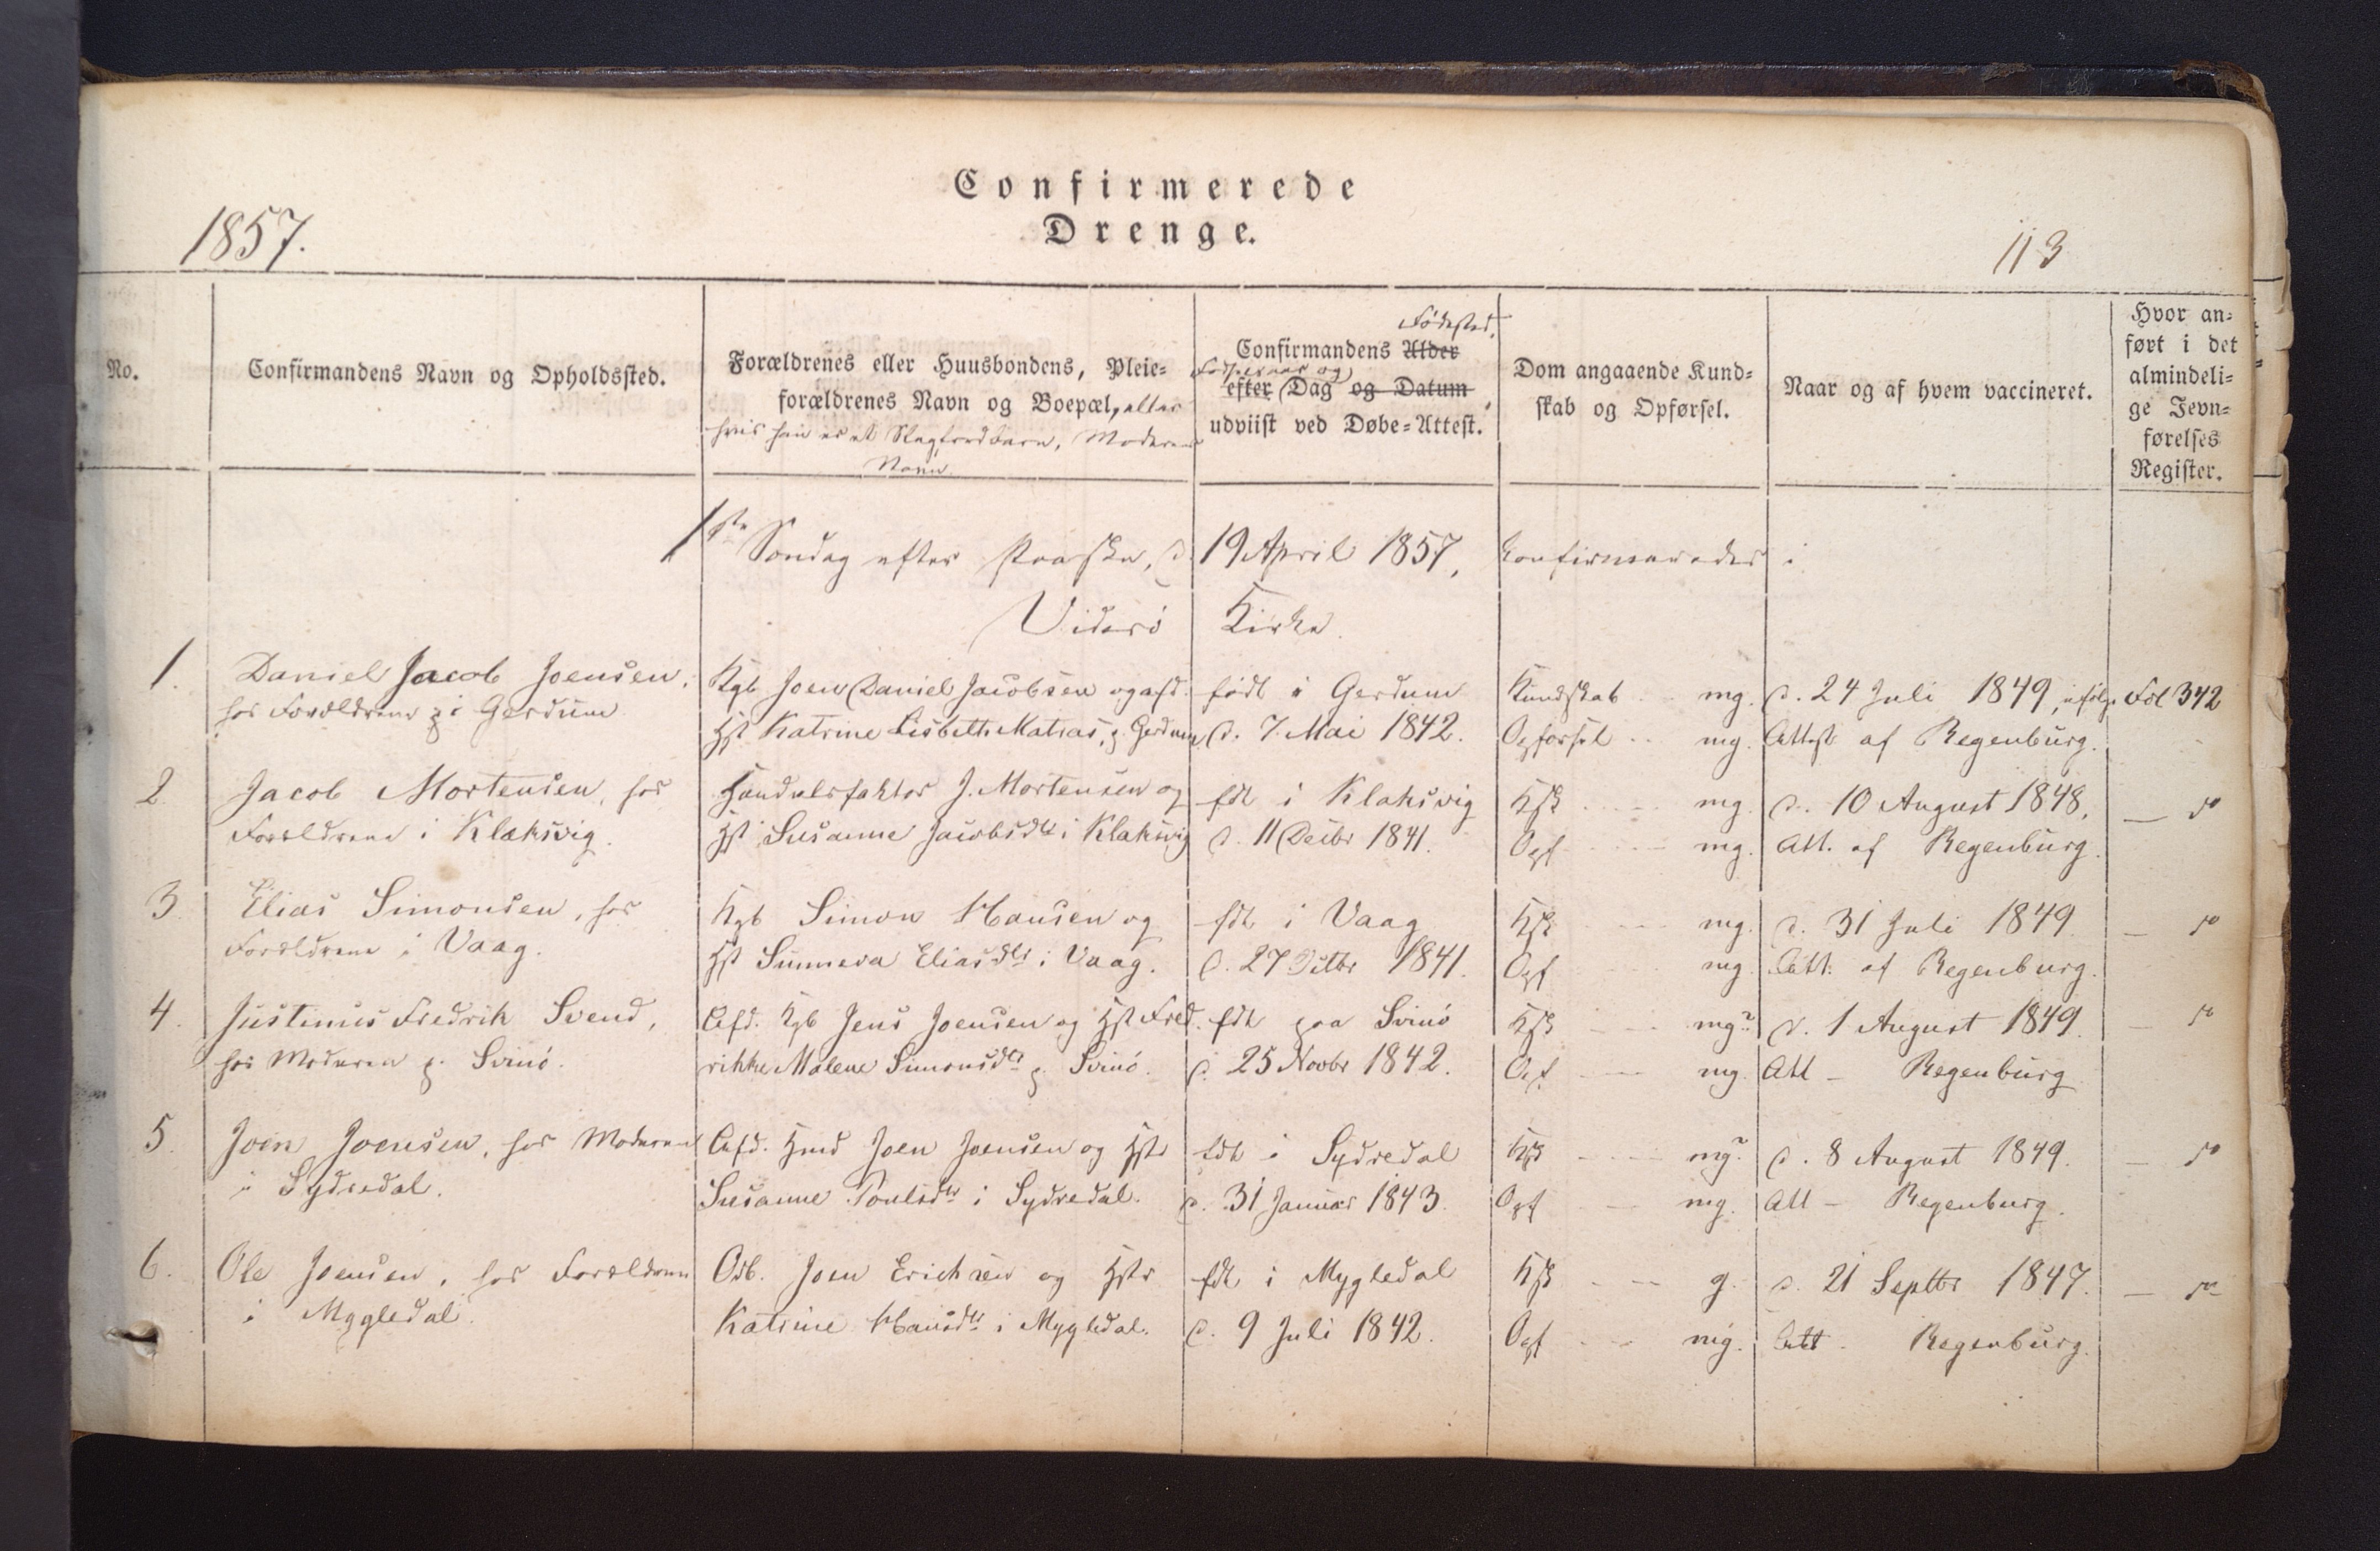 Confirmerede
Drenge.
1857.
113
No.
Confirmandens Navn og Opholdssted.
Forældrenes eller Huusbondens, Pleie-
forældrenes Navn og Boepæl, eller
hvis han er et Slegfredbarn, Moderens
Navn.
Fødested,
Confirmandens Alder
Fødselsaar og
efter Dag og Datum,
udviist ved Døbe-Attest.
Dom angaaende Kund-
skab og Opførsel.
Naar og af hvem vaccineret.
Hvor an-
ført i det
almindeli-
ge Jevn-
førelses
Register.
1ste Søndag efter Paaske, d. 19 April 1857, confirmeredes i
Viderø Kirke.
1. Daniel Jacob Joensen,
hos Forældrene i Gerdum.
Kgb Joen Daniel Jacobsen og afd.
Hst Katrine Lisbeth Matias, p. Gerdum
født i Gerdum
d. 7. Mai 1842.
Kundskab .. mg.
Opførsel .. mg.
d. 24 Juli 1849, ifølge
Attest af Regenburg.
Fol 342
2 Jacob Mortensen, hos
Forældrene i Klaksvig.
Handelsfaktor J. Mortensen og
Hst Susanne Jacobsdtr i Klaksvig
fdt i Klaksvig
d. 11 Decbr 1841.
Ksk .... mg.
Opf .... mg.
d. 10 August 1848,
Att. af Regenburg.
— do
3 Elias Simonsen, hos
Forældrene i Vaag.
Kgb Simon Hansen og
Hst Sunneva Eliasdtr i Vaag.
fdt i Vaag
d. 27 1841.
Ksk ... mg.
Opf mg.
d. 31 Juli 1849.
Att. af Regenburg.
— do
4. Justinus Fredrik Svend,
hos Moderen p. Svinø.
Afd. Kgb Jens Joensen og Hst Fred.
rikke Malene Simonsdtr p. Svinø.
fdt paa Svinø
d. 25 Novbr 1842.
Ksk ... mg?
Opf ... mg.
d. 1 August 1849.
Att — Regenburg
— do
5. Joen Joensen, hos Moderen
i Sydredal.
Afd. Hmd Joen Joensen og Hstr
Susanne Poulsdtr i Sydredal.
fdt i Sydredal
d. 31 Januar 1843.
Ksk ... mg?
Opf ... mg.
d. 8 August 1849.
Att — Regenburg.
— do
6. Ole Joensen, hos Forældrene
i Mygledal.
Odb. Joen Erichsen og Hstr
Katrine Hansdtr i Mygledal.
fdt i Mygledal
d. 9 Juli 1842.
Ksk ... g.
Opf ... mg.
d. 21 Septbr 1847.
Att. Regenburg.
— do